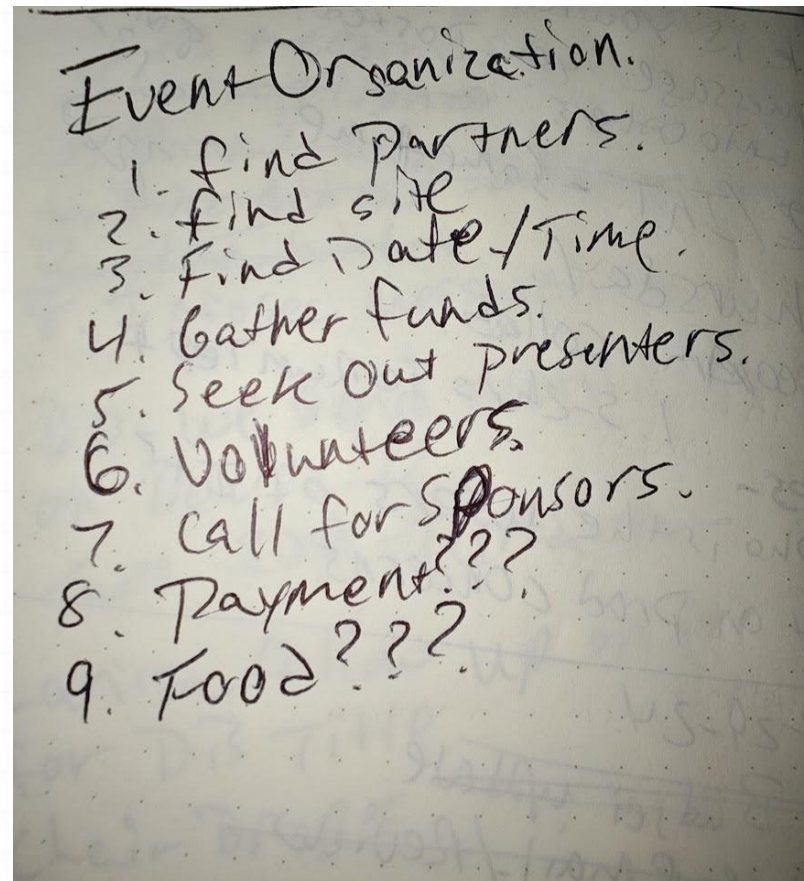 Event Organization.
1. find Partners.
2. find site
3. Find Date/Time.
4. Gather funds.
5. Seek out presenters.
6. Volunteers.
7. Call for Sponsors.
8. Payment???
9. Food???